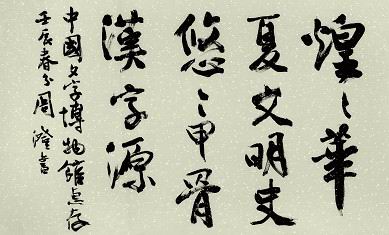 煌〻華
夏文明史
悠〻甲骨
漢字源
中國文字博物館惠存
壬辰春分周澄書